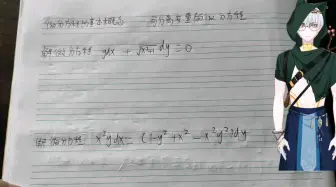 微分方程的基本概念 可分离变量的微分方程
解微分方程 ydx + √x²+1 dy = 0
解微分方程 x²ydx = (1-y²+x²-x²y²)dy